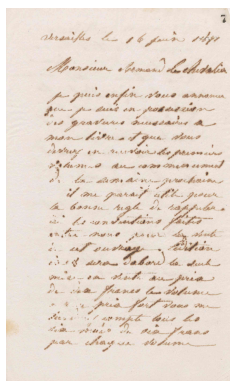 7
Versailles le 16 juin 18
Monsieur Armand Le Chevalier
je puis enfin vous annoncer
que je suis en possession
des gravures nécessaires a
mon livre et que vous
en recevoir les premiers
volumes au commencement
de la semaine prochaine
il me parait utile pour
la bonne règle de rappeler
ici les conditions faites
entre nous pour la vente
de cet ouvrage. l'édition
in 8 sera d'abord la seule
mise en vente au prix
de dix francs le volume
prix fort vous me
compte tous les
six mois de six francs
par chaque volume